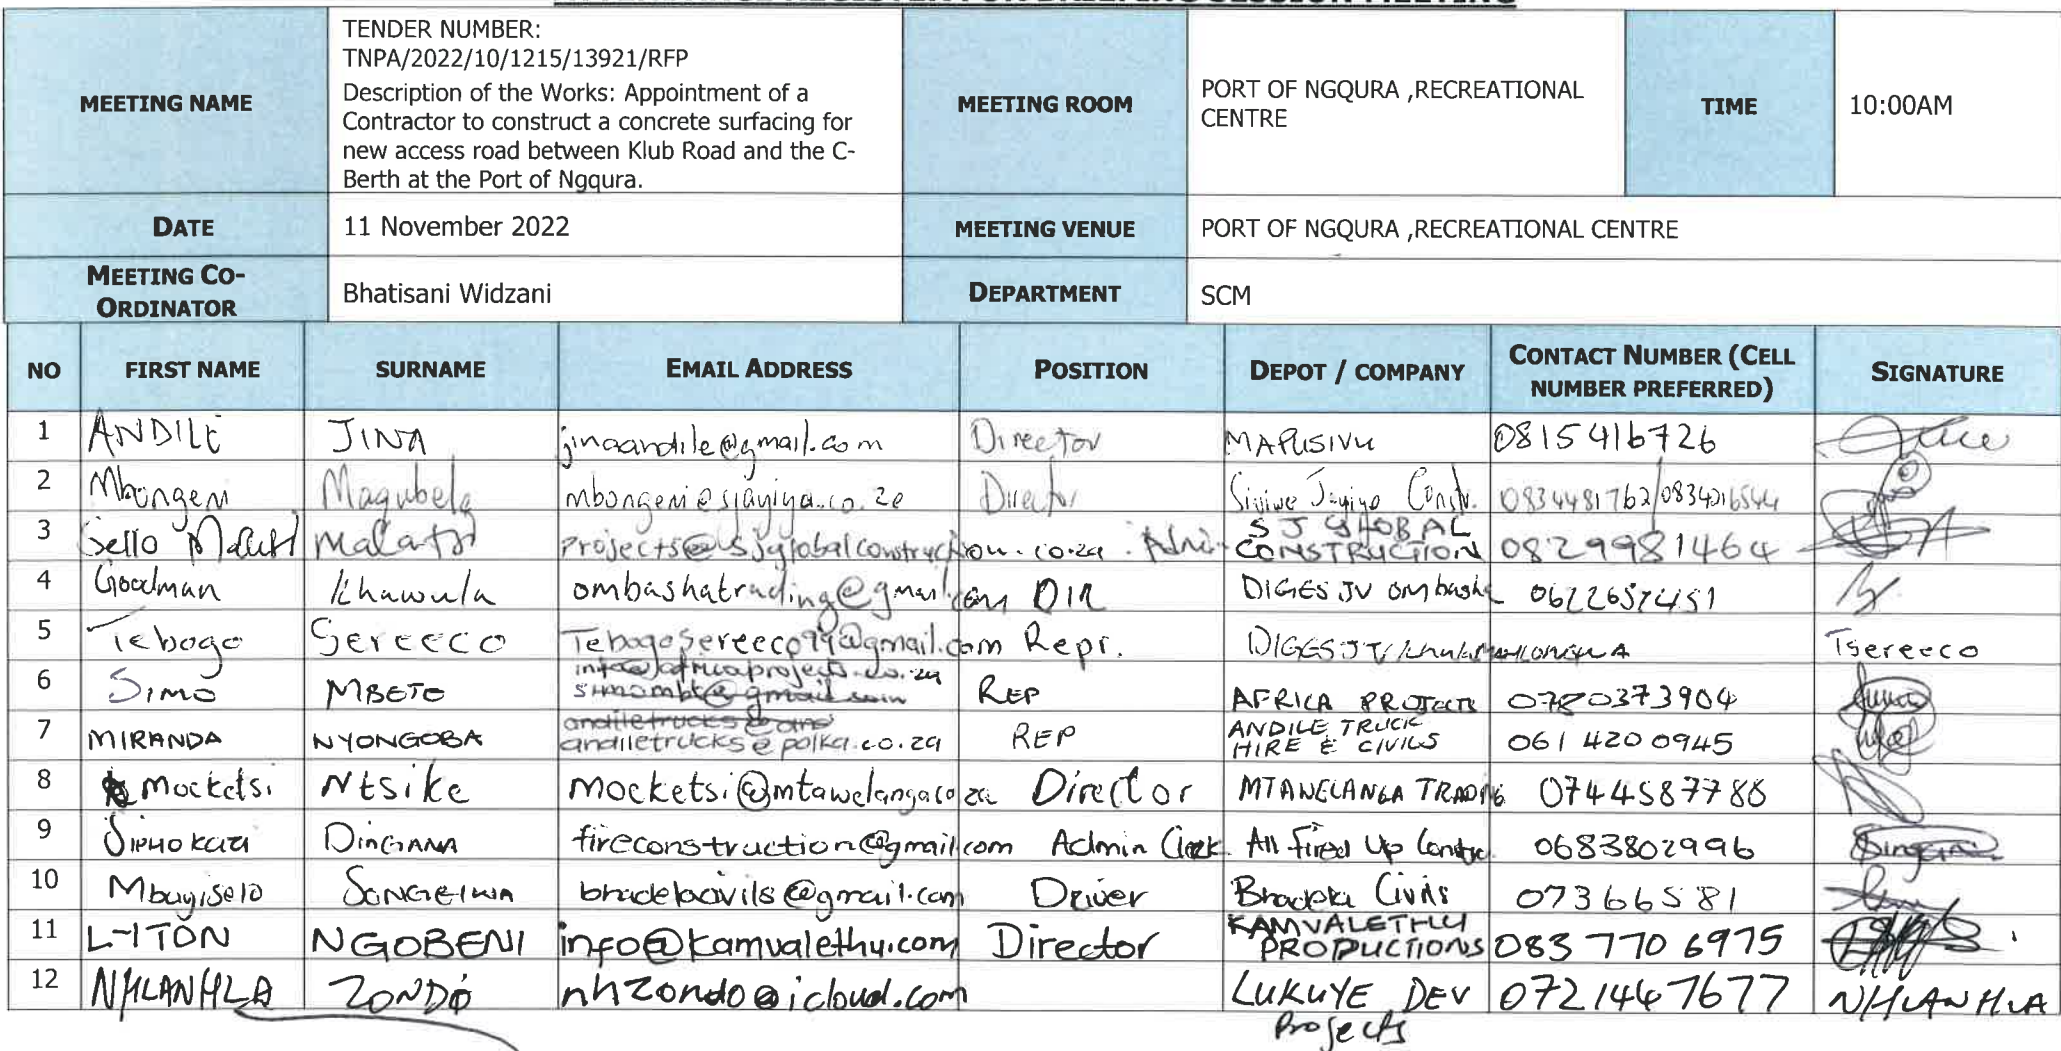 MEETING NAME
TENDER NUMBER:
TNPA/2022/10/1215/13921/RFP
Description of the Works: Appointment of a
Contractor to construct a concrete surfacing for
new access road between Klub Road and the C-
Berth at the Port of Ngqura.
MEETING ROOM
PORT OF NGQURA ,RECREATIONAL
CENTRE
TIME
10:00AM
DATE
11 November 2022
MEETING VENUE
PORT OF NGQURA ,RECREATIONAL CENTRE
MEETING CO-
ORDINATOR
Bhatisani Widzani
DEPARTMENT
SCM
NO FIRST NAME SURNAME EMAIL ADDRESS POSITION DEPOT / COMPANY CONTACT NUMBER (CELL
NUMBER PREFERRED) SIGNATURE
1 ANDILE JINA jinaandile@gmail.com Director MAPUSIVU 0815416726
2 Mbongeni Magubela mbongeni@sjayiya.co.za Director Siviwe Jayiya Constr. 0834481762/0834216544
3 Sello Malatsi projects@sjglobalconstruction.co.za Admin SJ GLOBAL
CONSTRUCTION 0829981464
4 Goodman Khawula ombashatrading@gmail.com DIR DIGES JV ombasha 0622657451
5 Tebogo Sereeco Tebogosereeco99@gmail.com Repr. DIGES JV Tsereeco
6 SIMO MBETE info@africaprojects.co.za
simombt@gmail.com REP AFRICA PROJECTS 0780373904
7 MIRANDA NYONGOBA andiletrucks@
andiletrucks@polka.co.za REP ANDILE TRUCK
HIRE & CIVILS 061 420 0945
8 Mocketsi Ntsike Mocketsi@mtawelanga.co.za Director MTAWELANGA TRADING 0744587788
9 Siphokazi DINGANA fireconstruction@gmail.com Admin Clerk All Fired Up Constr. 0683802996
10 Mbuyiselo SONGELWA bradebcivils@gmail.com Driver Civils 07366581
11 L-ITON NGOBENI info@kamvalethu.com Director KAMVALETHU
PRODUCTIONS 083 770 6975
12 NHLANHLA ZONDO nhzondo@icloud.com LUKUYE DEV 0721467677 NHLANHLA
Projects